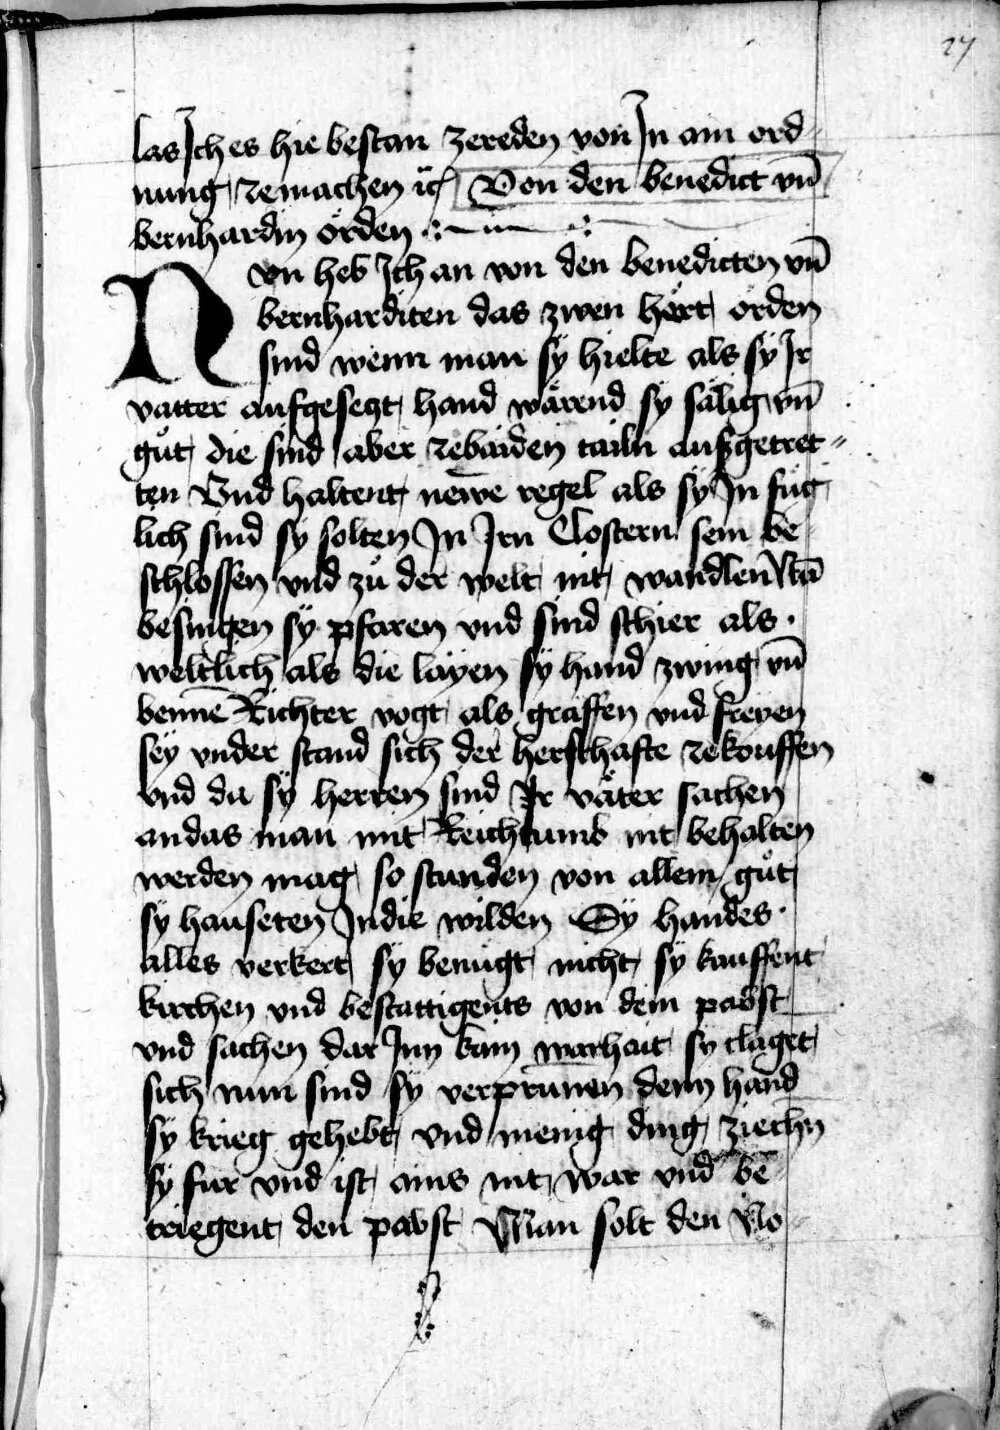 27
las Ich es hie bestan zereden von In ain ord-
nung zemachen ꝛc Von den benedict vn̄
bernhardin örden
Nvn heb Ich an von den benedicten vn̄
bernharditen das zwen hërt örden
sind wenn man sÿ hielte als sÿ Ir
vatter aufgesegt hand wärend sy sälig vn̄
gůt die sind aber zebaiden tailn aufzgetret-
ten Vnd haltent newe regel als sÿ In füg
lich sind sy solten In Irn Clostern sein be-
schlossen vnd zů der welt nit wandlen
besingen sÿ pfaren vnd sind schier als
weltlich als die laÿen sÿ hand zwing vn̄
benne Richter vogt als graffen vnd freyen
sey vnder stand sich der herschafte zekouffen
vnd da sÿ herren sind Ir väter sachen
an das man mit Reichtumb nit behalten
werden mag so stunden von allem gůt
sy hauseten In die wilden Sÿ handes
alles verkert sy benügt nicht sÿ kauffent
kirchen vnd bestattigents von dem pabst
vnd sachen dar Inn kain warhait sy claget
sich nun sind sÿ verprunnen denn hand
sy krieg gehebt vnd menig ding ziechn
sÿ für vnd ist ains nit war vnd be
triegent den pabst Man solt den No-